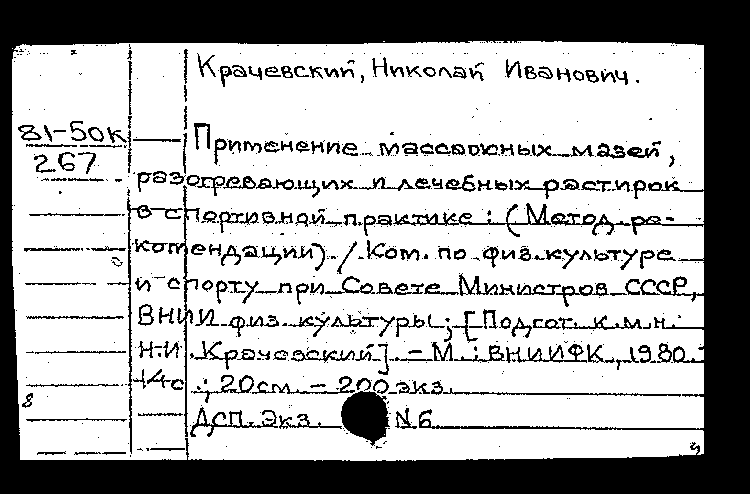 Крачевский, Николай Иванович.
81-50к
267
Применение массажных мазей,
разогревающих и лечебных растирок
в спортивной практике : (Метод. ре-
комендации) / Ком. по физ. культуре
и спорту при Совете Министров СССР,
ВНИИ физ. культуры ; [Подгот. к.м.н.
Н.И. Крачевский]. – М. : ВНИИФК, 1980. –
14с. ; 20см. – 200 экз.
ДСП. Экз. N6
8